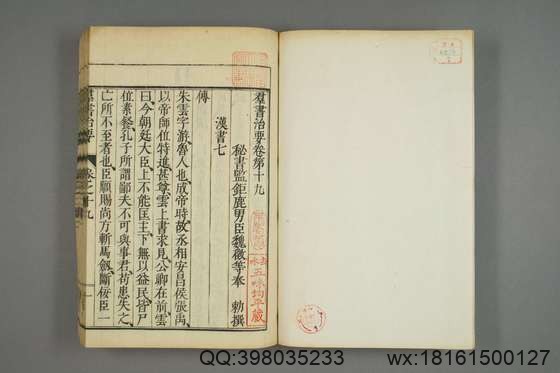 羣書治要卷第十九
秘書監鉅鹿男臣魏徵等奉 勅撰
漢書七
傳
朱雲字游魯人也成帝時故丞相安昌侯張禹
以帝師位特進甚尊雲上書求見公卿在前雲
曰今朝廷大臣上不能匡主下無以益民皆尸
位素餐孔子所謂鄙夫不可與事君苟患失之
亡所不至者也臣願賜尚方斬馬劍斷佞臣一
羣書治要 卷之十九
五味均平藏
QQ:398035233
wx:18161500127